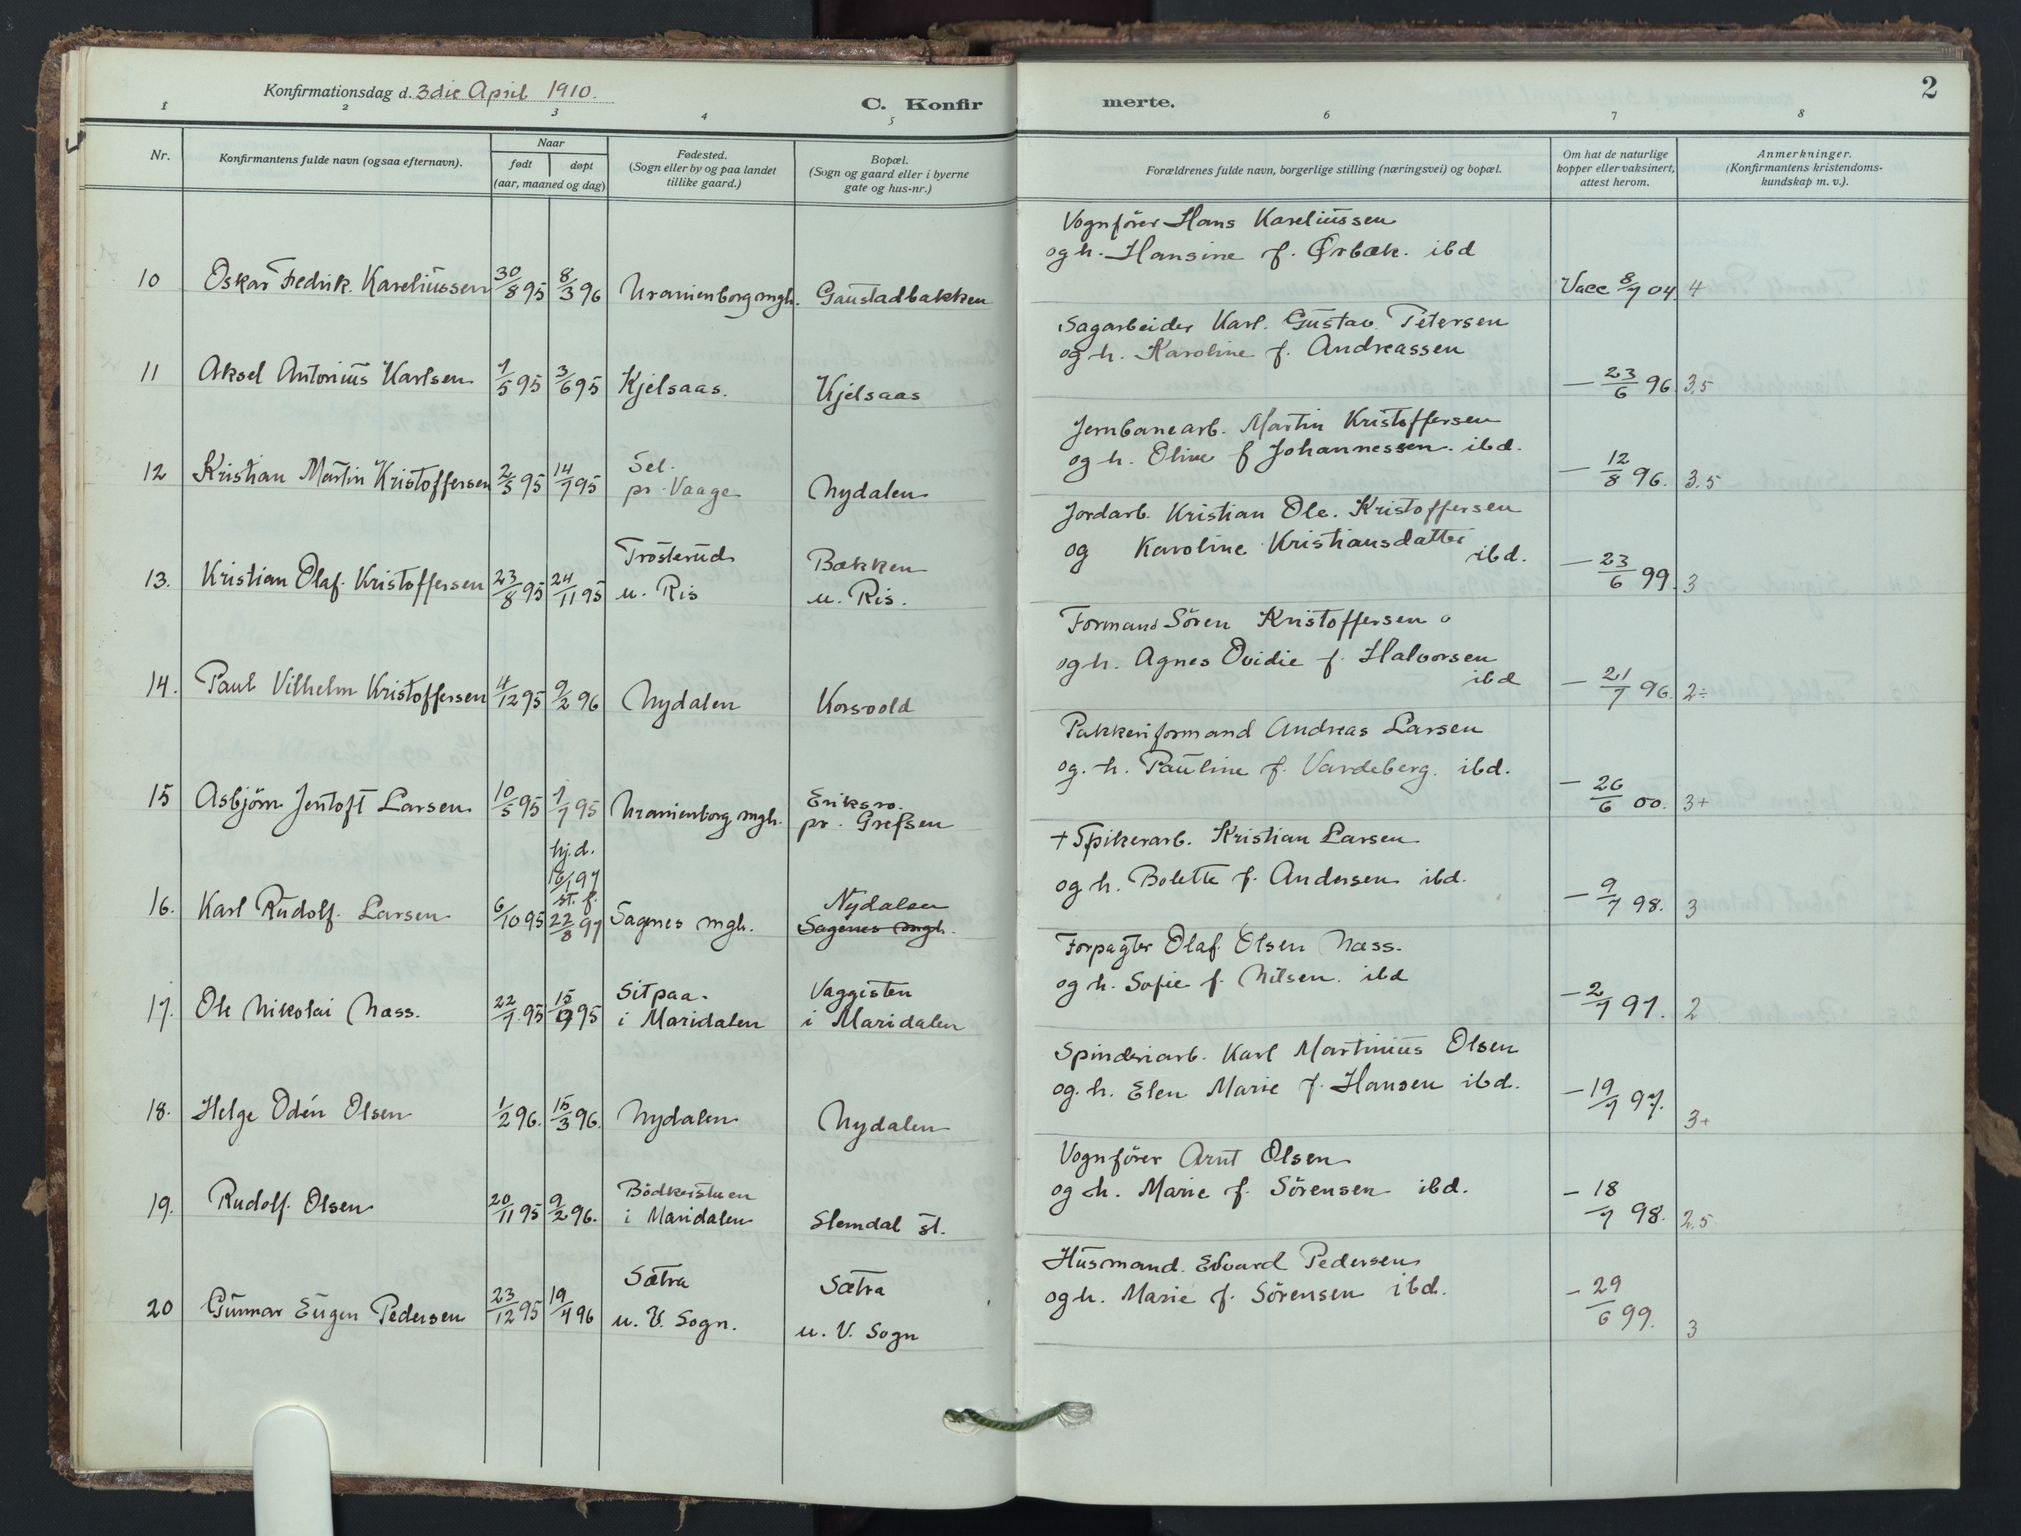 Konfirmationsdag d. 3die April 1910.
C. Konfir
merte.
2
1
2
3
4
5
6
7
8
Nr.
Konfirmantens fulde navn (ogsaa efternavn).
Naar
født
døpt
(aar, maaned og dag)
Fødested.
(Sogn eller by og paa landet
tillike gaard.)
Bopæl.
(Sogn og gaard eller i byerne
gate og hus-nr.)
Forældrenes fulde navn, borgerlige stilling (næringsvei) og bopæl.
Om hat de naturlige
kopper eller vaksinert,
attest herom.
Anmerkninger.
(Konfirmantens kristendoms-
kundskap m. v.).
10 Oskar Fredrik. Kareliussen 30/8 95 8/3 96 Uranienborg mgh. Gaustadbakken
Vognfører Hans Kareliussen
og h. Hansine f. Ørbæk. ibd
Vacc 8/7 04 4
11 Aksel Antonius Karlsen 7/5 95 3/6 95 Kjelsaas. Kjelsaas
Sagarbeider Karl. Gustav. Petersen
og h. Karoline f. Andreassen
— 23/6 96. 3,5
12 Kristian Martin Kristoffersen 2/3 95 14/7 95 Sel.
pr. Vaage Nydalen
Jernbanearb. Martin Kristoffersen
og h. Oline f Johannessen. ibd.
— 12/8 96. 3,5
13. Kristian Olaf. Kristoffersen 23/8 95 24/11 95 Trosterud
u. Ris
Bakken
u. Ris.
Jordarb. Kristian Ole. Kristoffersen
og Karoline Kristiansdatter
ibd.
— 23/6 99. 3
14. Paul Vilhelm Kristoffersen 4/12 95 9/2 96 Nydalen Korsvold
Formand Søren Kristoffersen
og h. Agnes Ovidie f. Halvorsen
ibd
— 21/7 96. 2÷
15 Asbjørn Jentoft Larsen 10/5 95 7/7 95 Uranienborg mgh. Eriksro.
pr. Grefsen
Pakkeriformand Andreas Larsen
og. h. Pauline f. Vardeberg. ibd.
— 26/6 00. 3+
16. Karl Rudolf. Larsen 6/10 95
hj.d.
16/1 97
st. f.
22/8 97 Sagnes mgh.
Nydalen
Sagenes mgh.
+ Spikerarb. Kristian Larsen
og h. Bolette f. Andersen ibd.
— 9/7 98. 3
17. Ole Nikolai Næss. 22/7 95 15/9 95 Sitpaa.
i Maridalen
Vaggisten
i Maridalen
Forpagter Olaf Olsen Næss.
og h. Sofie f. Nilsen. ibd
— 2/7 97. 2
18. Helge Odén Olsen 1/2 96. 15/3 96. Nydalen Nydalen
Spinderiarb. Karl Martinius Olsen
og. h. Elen Marie f. Hansen ibd.
— 19/7 97. 3+
19. Rudolf. Olsen 20/11 95 9/2 96. Bödkerstuen
i Maridalen
Slemdal st.
Vognfører Arnt Olsen
og h. Marie f. Sørensen ibd.
— 18/7 98. 2,5
20 Gunnar Eugen Pedersen 23/12 95 19/4 96 Sætra
u. V. Sogn.
Sætra
u. V. Sogn
Husmand. Edvard Pedersen
og h. Marie f. Sørensen ibd.
— 29/6 99. 3